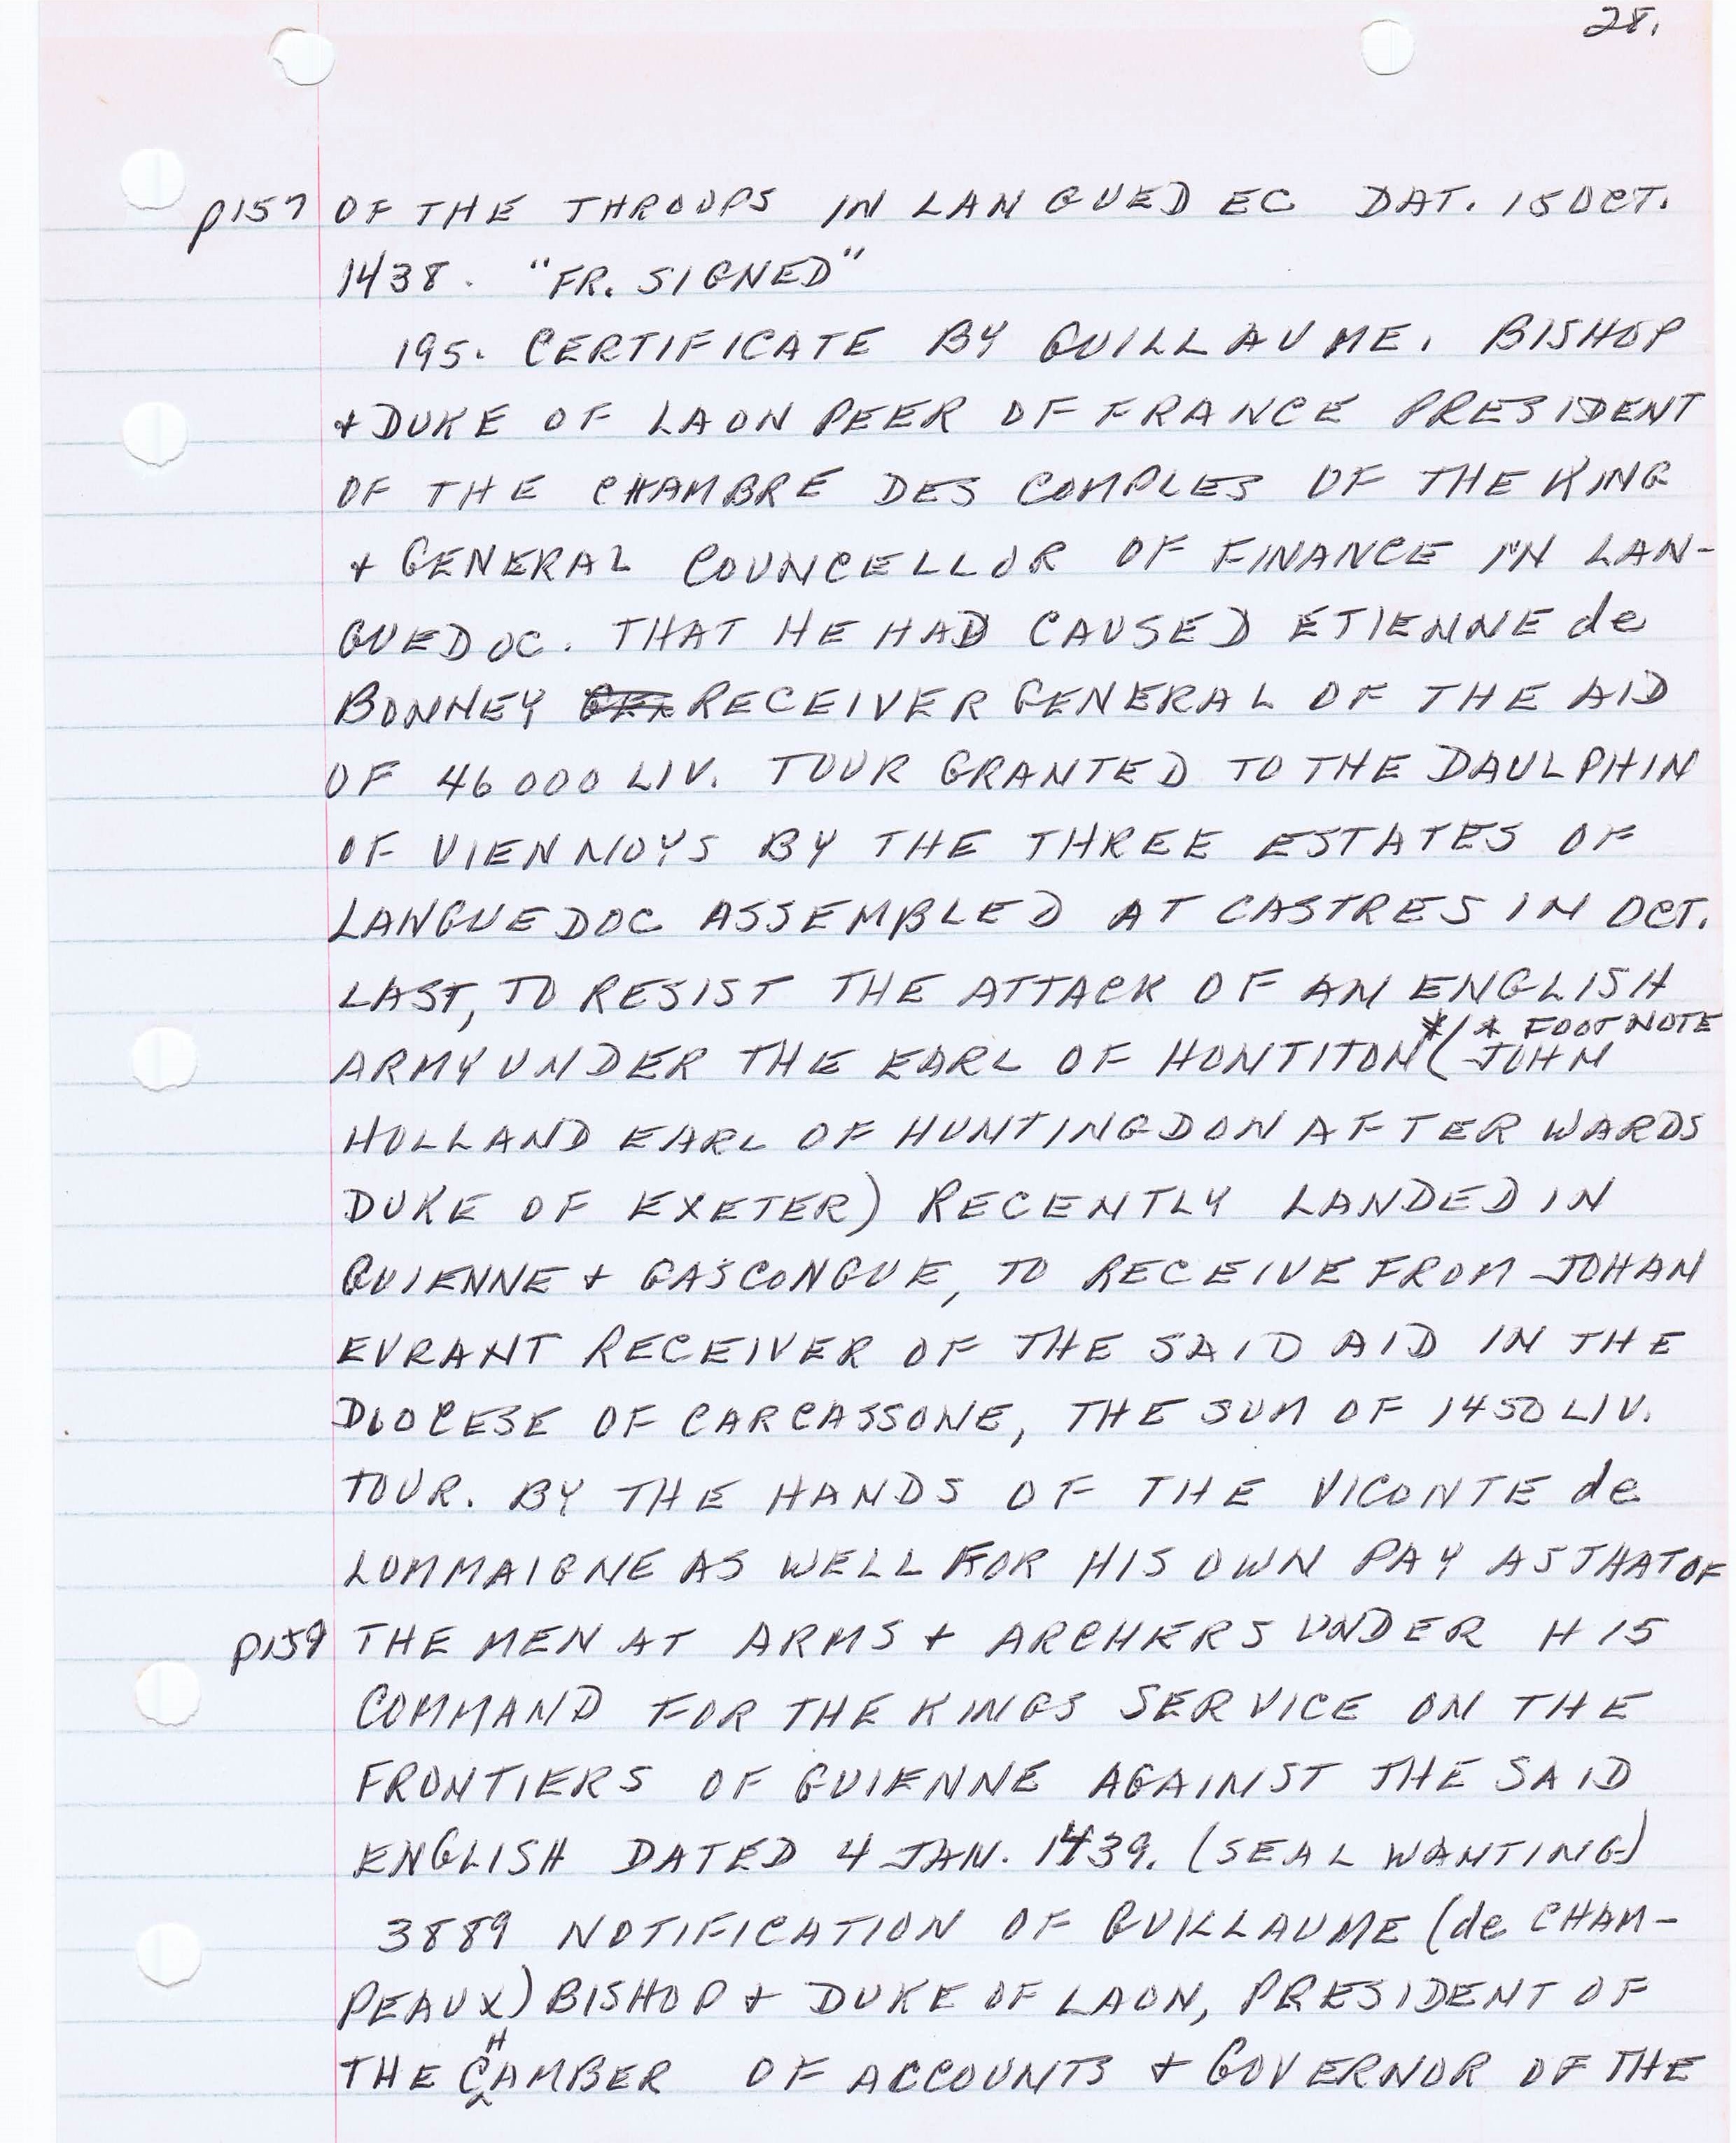 28.
p157 OF THE THROOPS IN LANGUED EC DAT. 15 OCT.
1438. "FR. SIGNED"
195. CERTIFICATE BY GUILLAUME, BISHOP
+ DUKE OF LAON PEER OF FRANCE PRESIDENT
OF THE CHAMBRE DES COMPLES OF THE KING
+ GENERAL COUNCELLOR OF FINANCE IN LAN-
GUEDOC. THAT HE HAD CAUSED ETIENNE de
BONNEY RECEIVER GENERAL OF THE AID
OF 46000 LIV. TOUR GRANTED TO THE DAULPHIN
OF VIENNOYS BY THE THREE ESTATES OF
LANGUEDOC ASSEMBLED AT CASTRES IN OCT.
LAST, TO RESIST THE ATTACK OF AN ENGLISH
ARMY UNDER THE EARL OF HONTITON* (* FOOTNOTE JOHN
HOLLAND EARL OF HUNTINGDON AFTERWARDS
DUKE OF EXETER) RECENTLY LANDED IN
GUIENNE + GASCONGUE, TO RECEIVE FROM JOHAN
EVRANT RECEIVER OF THE SAID AID IN THE
DIOCESE OF CARCASSONE, THE SUM OF 1450 LIV.
TOUR. BY THE HANDS OF THE VICONTE de
LOMMAIGNE AS WELL FOR HIS OWN PAY AS THAT OF
p159 THE MEN AT ARMS + ARCHERS UNDER HIS
COMMAND FOR THE KINGS SERVICE ON THE
FRONTIERS OF GUIENNE AGAINST THE SAID
ENGLISH DATED 4 JAN. 1439. (SEAL WANTING)
3889 NOTIFICATION OF GUILLAUME (de CHAM-
PEAUX) BISHOP + DUKE OF LAON, PRESIDENT OF
THE CHAMBER OF ACCOUNTS + GOVERNOR OF THE